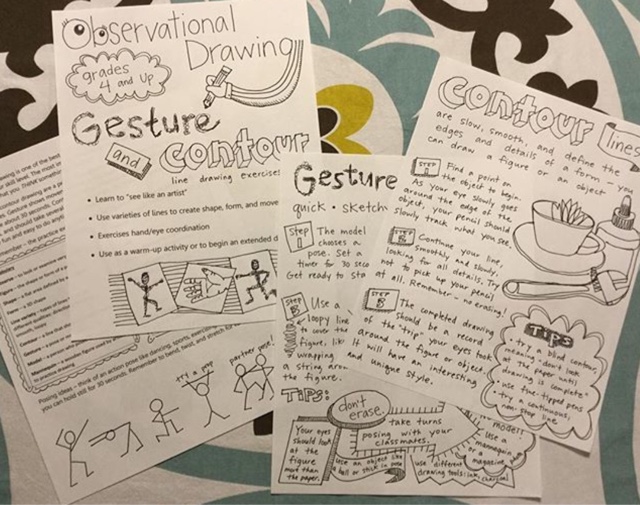 Observational
Drawing
grades
4 and up
Gesture
and contour
line drawing exercises
• Learn to "see like an artist"
• Use varieties of lines to create shape, form, and move
• Exercises hand/eye coordination
• Use as a warm-up activity or to begin an extended d
Posing Ideas - think of an action pose like dancing, sports, exercise
you can hold still for 30 seconds. Remember to bend, twist, and stretch for
try a prop
partner pose!
Gesture
quick • sketch
STEP 1
The model
chooses a
pose. Set a
timer for 30 seco
Get ready to sta
STEP 2
Use a
loopy line
to cover the
figure, like
wrapping
a string arou
the figure.
TIPS:
don't
erase.
Your eyes
should look
at the
figure
more than
the paper.
take turns
posing with your
classmates.
use an object like
a ball or stick in pose
use different
drawing tools: ink, charcoal
Use a
mannequin
or a
magazine
model!
contour lines
are slow, smooth, and define the
edges and details of a form – you
can draw a figure or an object
STEP 1
Find a point on
the object to begin.
As your eye slowly goes
around the edge of the
object, your pencil should
slowly track what you see.
STEP 2
Continue your line,
smoothly and slowly,
looking for all details. Try
not to pick up your pencil
at all. Remember – no erasing!
STEP 3
The completed drawing
should be a record
of the "trip" your eyes took
around the figure or object.
It will have an interesting
and unique style.
TIPS
• try a blind contour,
meaning "don't look
at the paper until
drawing is complete"
• use felt tipped pens
• try a continuous,
non-stop line